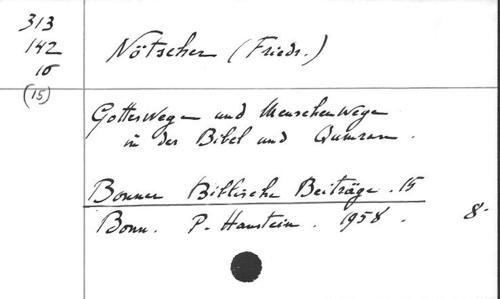 313
142
10
(15)
Nötscher (Friedr.)
Gotteswege und Menschenwege
in der Bibel und Qumran.
Bonner Biblische Beiträge. 15
Bonn. P. Hanstein. 1958. 8-